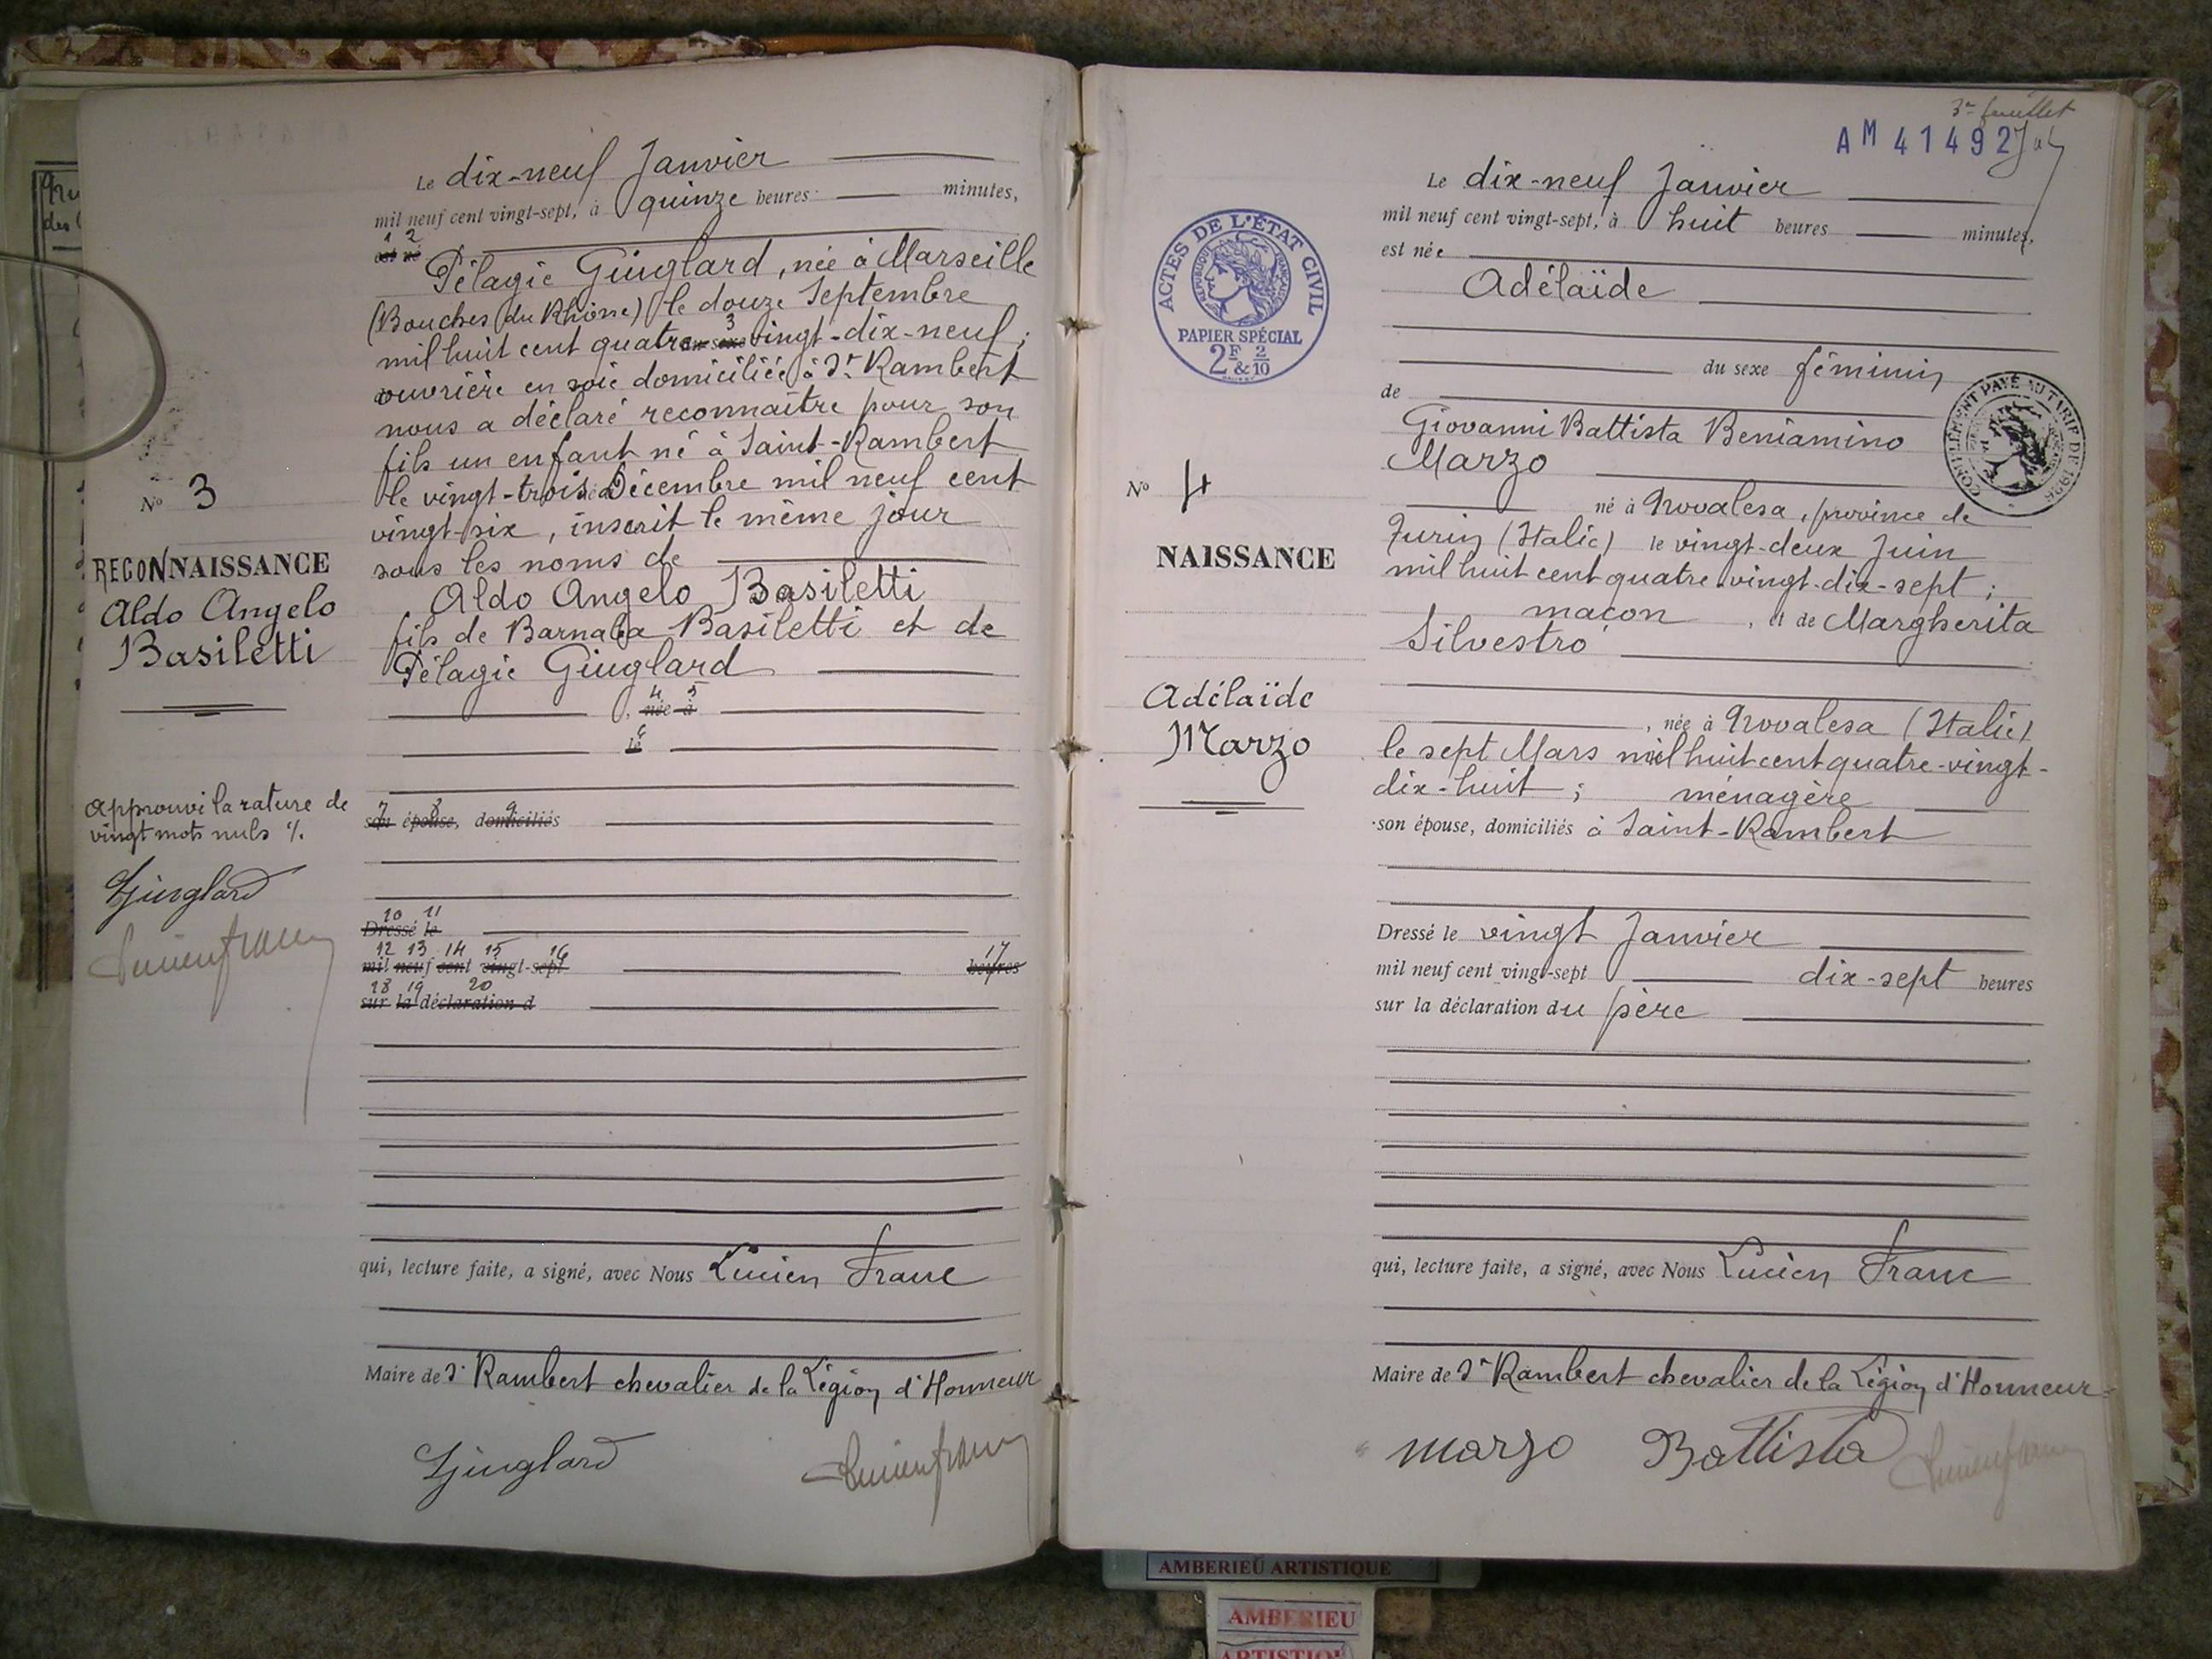 Le dix-neuf Janvier
mil neuf cent vingt-sept, à quinze heures minutes,
1 2
est né Pélagie Guiglard, née à Marseille
(Bouches du Rhône) le douze Septembre
3
mil huit cent quatre du sexe vingt-dix-neuf;
ouvrière en soie domiciliée à St Rambert
nous a déclaré reconnaître pour son
fils un enfant né à Saint-Rambert
le vingt-trois Décembre mil neuf cent
vingt-six, inscrit le même jour
sous les noms de
Aldo Angelo Basiletti
fils de Barnaba Basiletti et de
Pélagie Guiglard
4 5
, née à
6
le
7 8 9
son épouse, domiciliés
10 11
Dressé le
12 13 14 15 16 17
mil neuf cent vingt-sept heures
18 19 20
sur la déclaration d
qui, lecture faite, a signé, avec Nous Lucien Franc
Maire de St Rambert chevalier de la Légion d'Honneur
Guiglard Lucien Franc
No 3
RECONNAISSANCE
Aldo Angelo
Basiletti
Approuvé la rature de
vingt mots nuls
Guiglard
Lucien Franc
3e feuillet
AM 41492
ACTES DE L'ÉTAT CIVIL
RÉPUBLIQUE FRANÇAISE
PAPIER SPÉCIAL
2F & 2/10
No 4
NAISSANCE
Adélaïde
Marzo
Le dix-neuf Janvier
mil neuf cent vingt-sept, à huit heures minutes,
est née
Adélaïde
du sexe féminin
COMPLÉMENT PAYÉ AU TARIF DE 1926
de
Giovanni Battista Beniamino
Marzo
né à Novalesa, province de
Turin (Italie) le vingt-deux Juin
mil huit cent quatre vingt-dix-sept;
maçon, et de Margherita
Silvestro
, née à Novalesa (Italie)
le sept Mars mil huit cent quatre-vingt-
dix-huit; ménagère
son épouse, domiciliés à Saint-Rambert
Dressé le vingt Janvier
mil neuf cent vingt-sept dix-sept heures
sur la déclaration du père
qui, lecture faite, a signé, avec Nous Lucien Franc
Maire de St Rambert chevalier de la Légion d'Honneur
marzo Battista Lucien Franc
AMBERIEU ARTISTIQUE
AMBERIEU